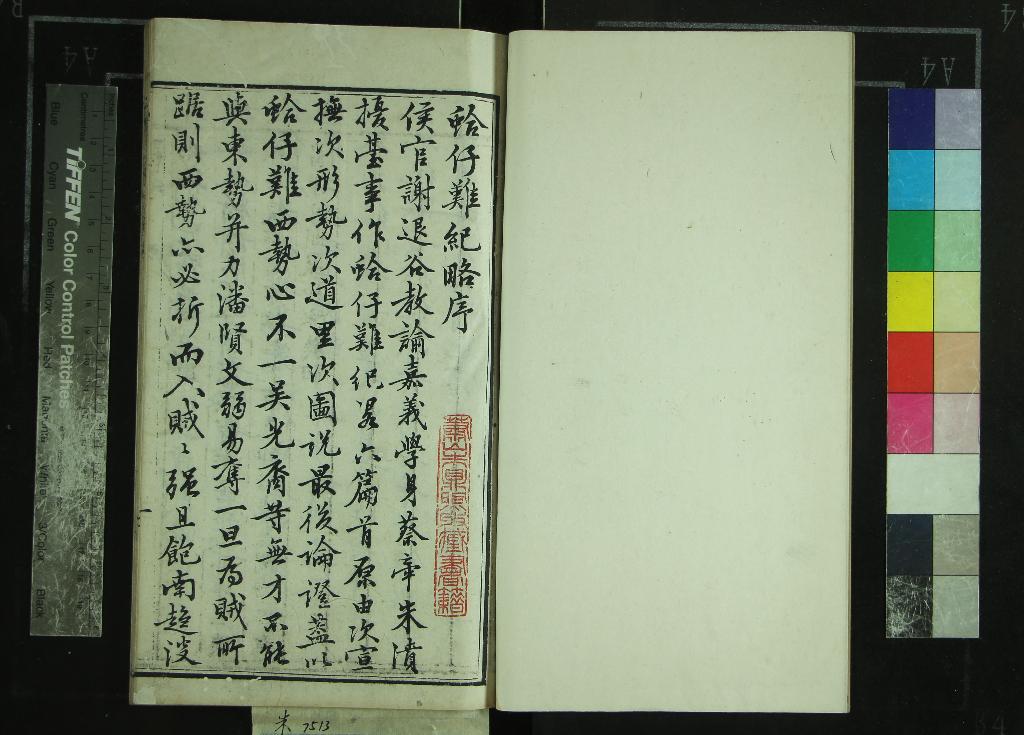 蛤仔難紀略序
侯官謝退谷教諭嘉義學身蔡牽朱濆
擾臺事作蛤仔難紀畧六篇首原由次宣
撫次形勢次道里次圖説最後論證蓋以
蛤仔難西勢心不一吴光裔等無才不能
與東勢并力潘賢文弱易奪一旦為賊所
踞則西勢亦必折而入賊〻强且飽南趨淡
朱 7513
TIFFEN Color Control Patches
Blue
Cyan
Green
Yellow
Red
Magenta
White
3/Color
Black
Centimetres
A4
A4